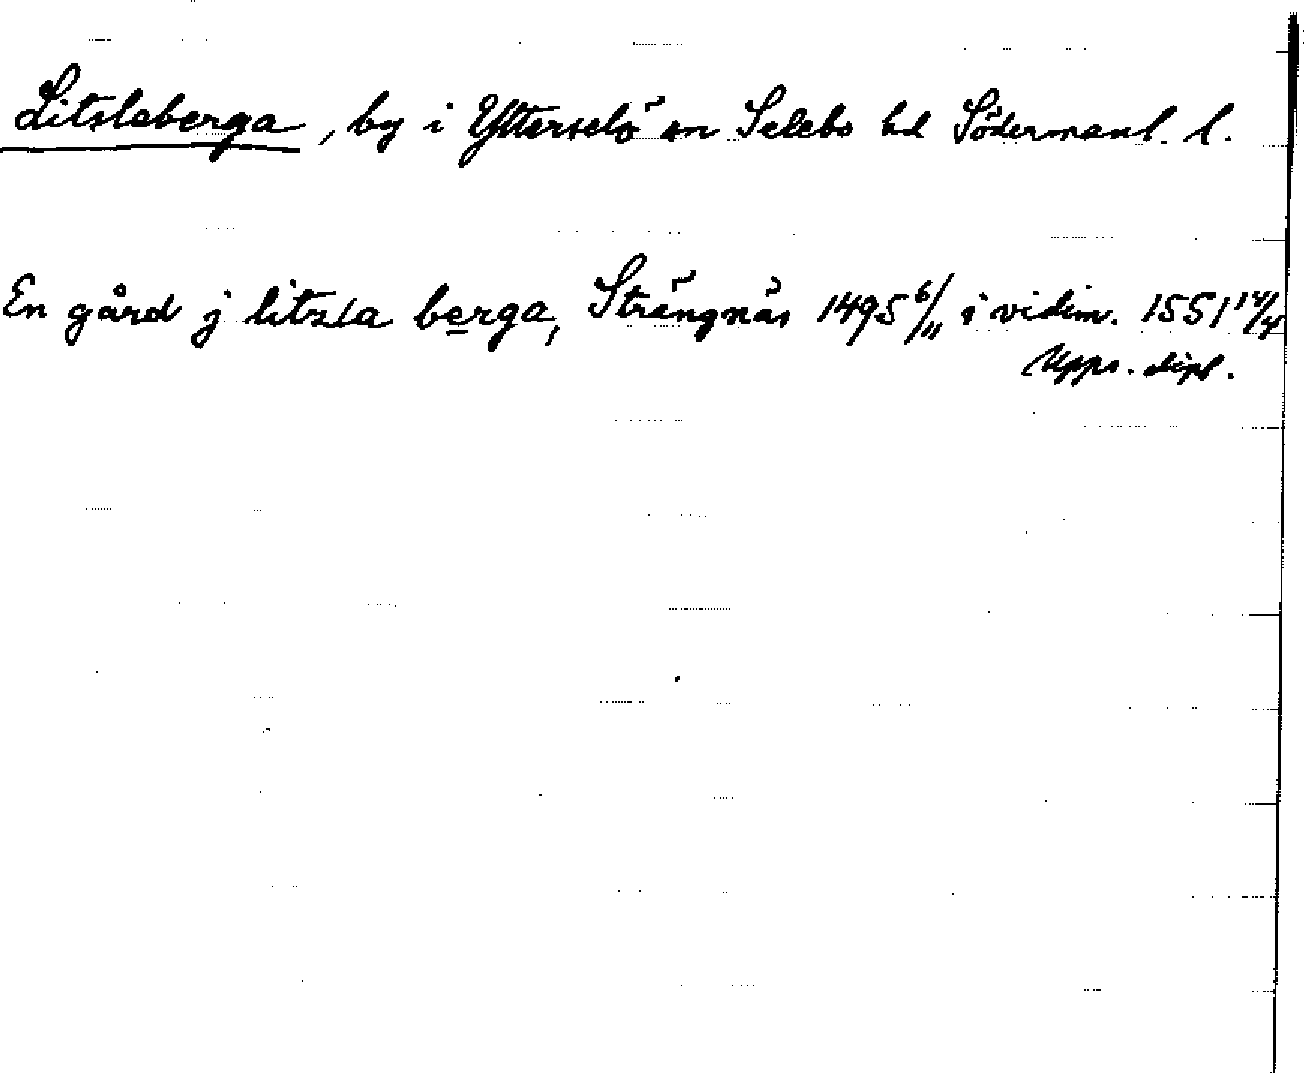 Litsleberga, by i Ytterselö sn Selebo hd Södermanl. l.
En gård j litzla berga, Strängnäs 1495 6/11 i vidim. 1551 14/4
Upps. dipl.